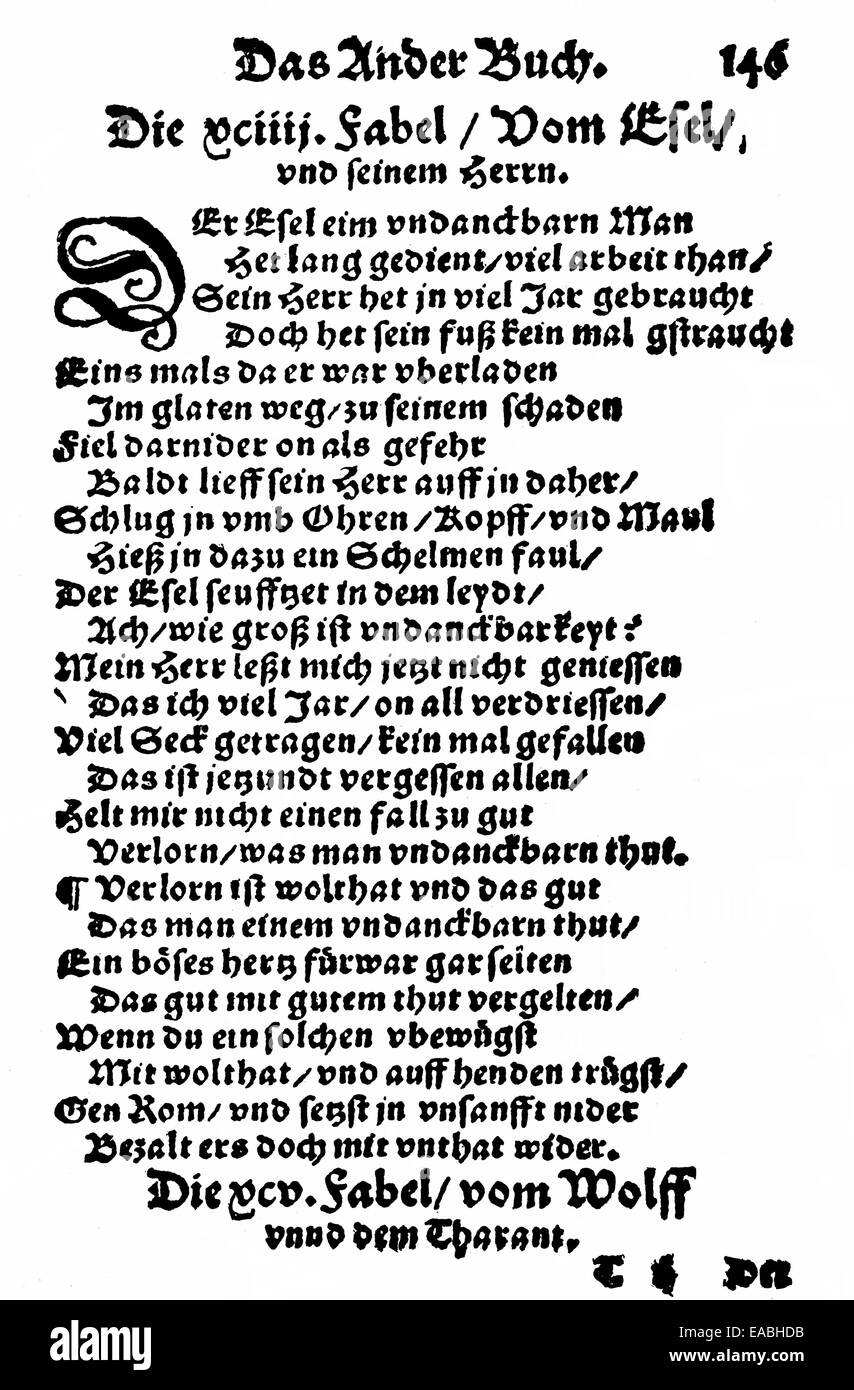 Das Ander Buch. 146
Die xciiij. Fabel / Vom Esel /
vnd seinem Herrn.
DEr Esel eim vndanckbarn Man
Het lang gedient / viel arbeit than /
Sein Herr het jn viel Jar gebraucht
Doch het sein fuß kein mal gstraucht
Eins mals da er war vberladen
Im glaten weg / zu seinem schaden
Fiel darnider on als gefehr
Baldt lieff sein Herr auff jn daher /
Schlug jn vmb Ohren / Kopff / vnd Maul
Hieß jn dazu ein Schelmen faul /
Der Esel seufftzet in dem leydt /
Ach / wie groß ist vndanckbarkeyt?
Mein Herr leßt mich jetzt nicht geniessen
Das ich viel Jar / on all verdriessen /
Viel Seck getragen / kein mal gefallen
Das ist jetzundt vergessen allen /
Helt mir nicht einen fall zu gut
Verlorn / was man vndanckbarn thut.
¶ Verlorn ist wolthat vnd das gut
Das man einem vndanckbarn thut /
Ein böses hertz fürwar gar selten
Das gut mit gutem thut vergelten /
Wenn du ein solchen vbewügst
Mit wolthat / vnd auff henden trügst /
Gen Rom / vnd setzst jn vnsanfft nider
Bezalt ers doch mit vnthat wider.
Die xcv. Fabel / vom Wolff
vnnd dem Tharant.
T Der
alamy
alamy stock photo
EABHDB
www.alamy.com